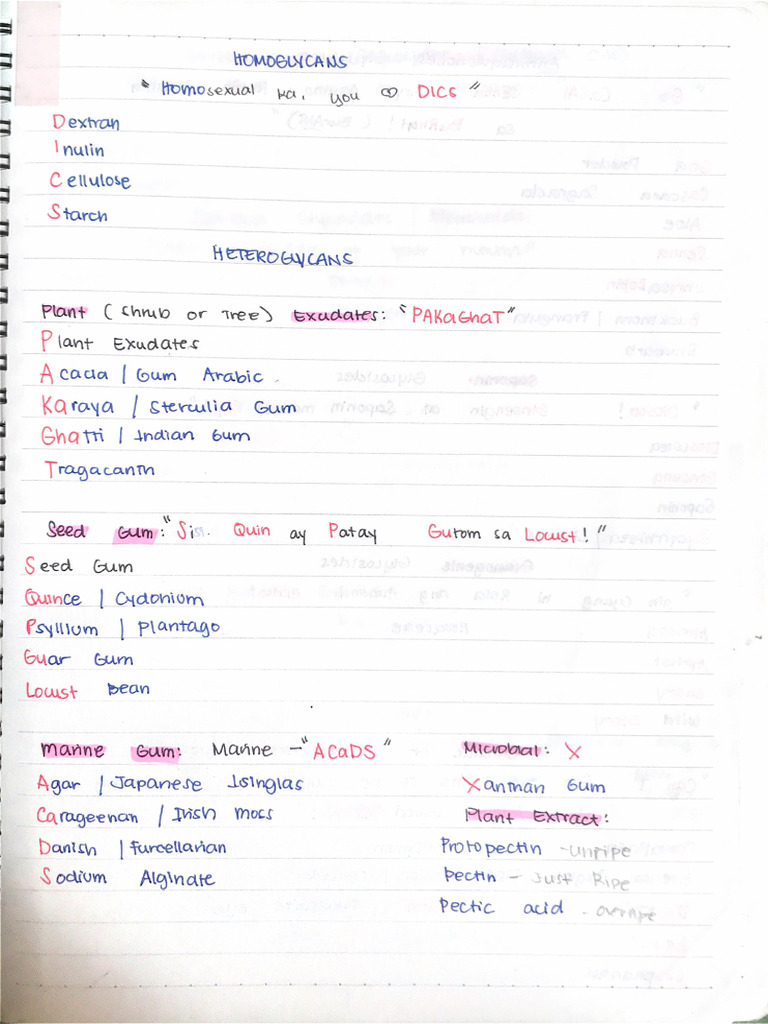 HOMOGLYCANS
" Homosexual ka, you ♡ DICS "
Dextran
Inulin
Cellulose
Starch
HETEROGLYCANS
Plant ( Shrub or Tree) Exudates: "PAKaGhaT"
Plant Exudates
Acacia | Gum Arabic
KAraya / Sterculia Gum
Ghatti | Indian Gum
Tragacanth
Seed Gum: "Sis. Quin ay Patay Gutom sa Locust! "
Seed Gum
Quince | Cydonium
Psyllium | Plantago
Guar Gum
Locust Bean
Marine Gum: Marine - "ACaDS "
Agar | Japanese Isinglas
Carageenan / Irish moss
Danish | Furcellarian
Sodium Alginate
Microbial: X
Xanthan Gum
Plant Extract:
Protopectin - unripe
Pectin - Just Ripe
Pectic acid - overripe